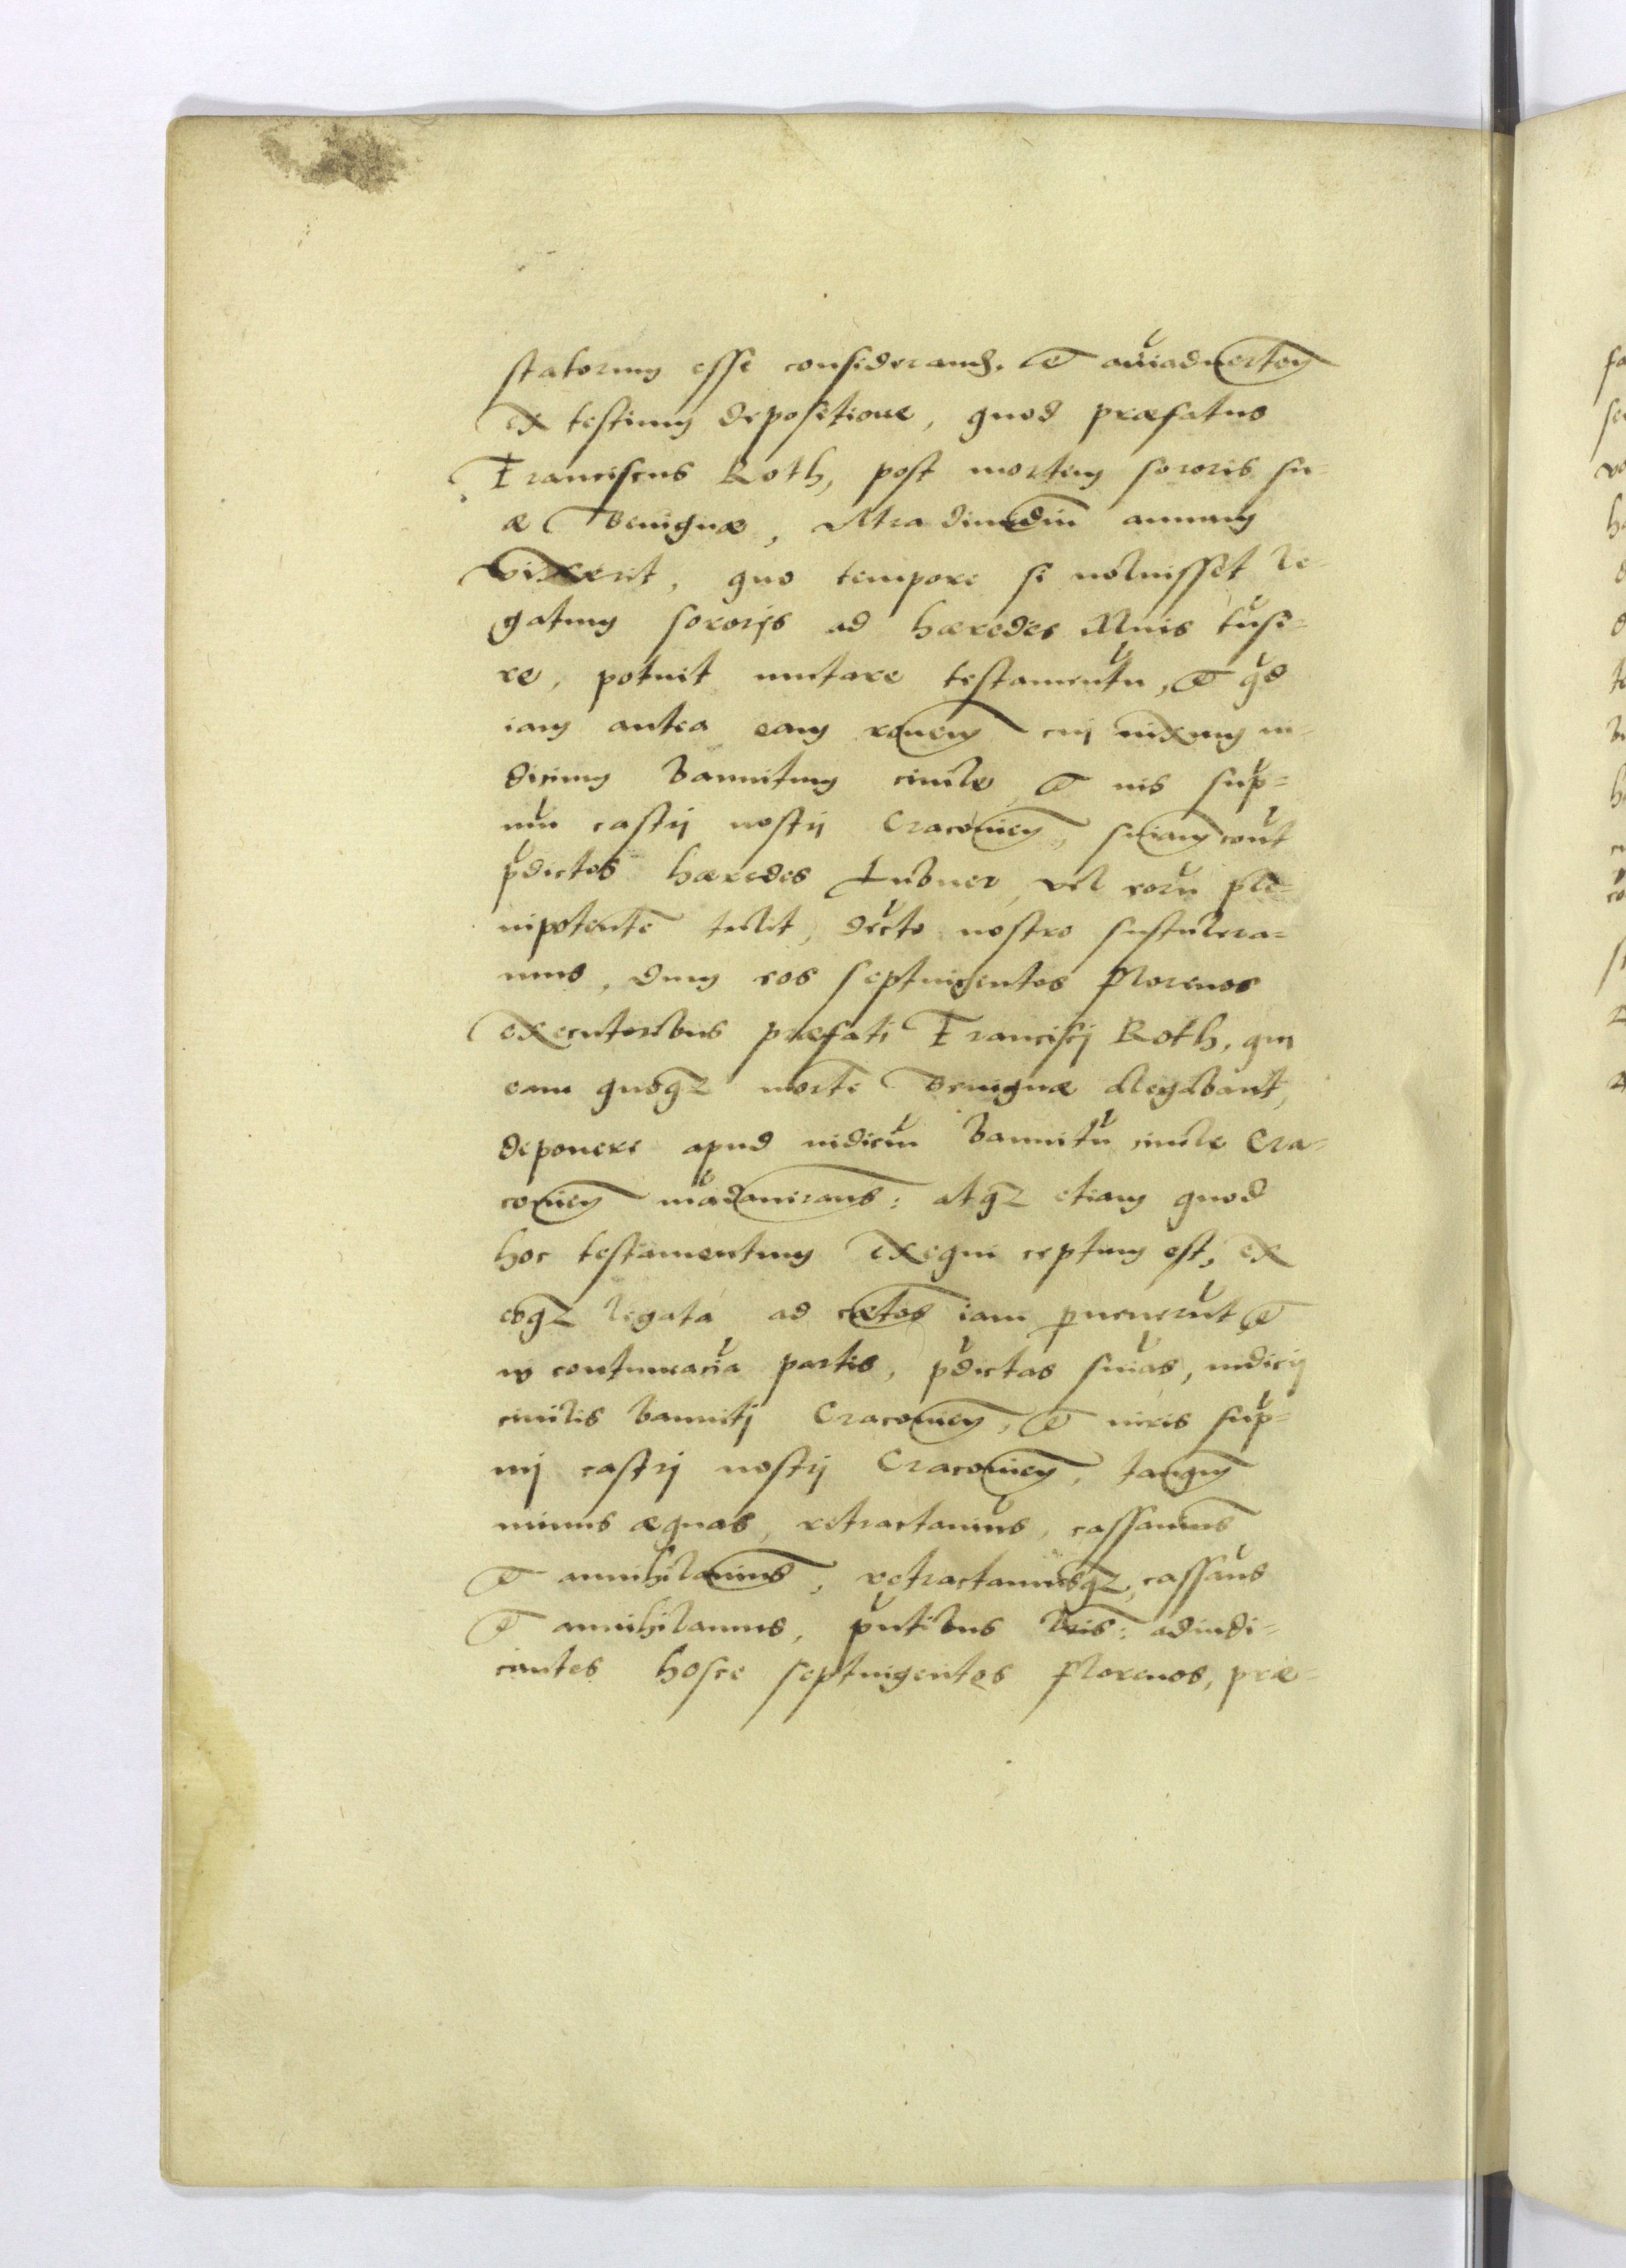 statorum esse considerand. et aĩadverten̄
ex testium depositione, quod præfatus
Franciscus Roth, post mortem sororis su-
æ Benignæ, ultra dimidiū annum
vixerit, quo tempore si voluisset le-
gatum sororis ad hæredes illius trāsi-
re, potuit mutare testamentū, et qd
iam antea eam ronem cui nixum iu-
dicium bannitum civile et ius sup-
mū castri nostri Cracovien̄, sniam cont
pdictos hæredes Lubner, vel eorū ple-
nipotentē tulit, decto nostro sustulera-
mus, dum eos septuigentos florenos
executoribus præfati Francisci Roth, qui
eam quoqz morte Benignæ allegabant,
deponere apud iudiciū bannitū civile Cra-
covien̄ mādaveramus: atqz etiam quod
hoc testamentum exequi ceptum est, ex
eoqz legata ad cætos iam pvenerūt et
in contumacia partis, pdictas snīas, iudicij
civilis banniti Cracovien̄, et iuris sup-
mi castri nostri Cracovien̄, tanqm
minus æquas, retractavimus, cassavimus
et annihilavimus, retractamusqz, cassāus
et annihilamus, pntibus lris: adiudi-
cantes hosce septuigentos florenos, præ-